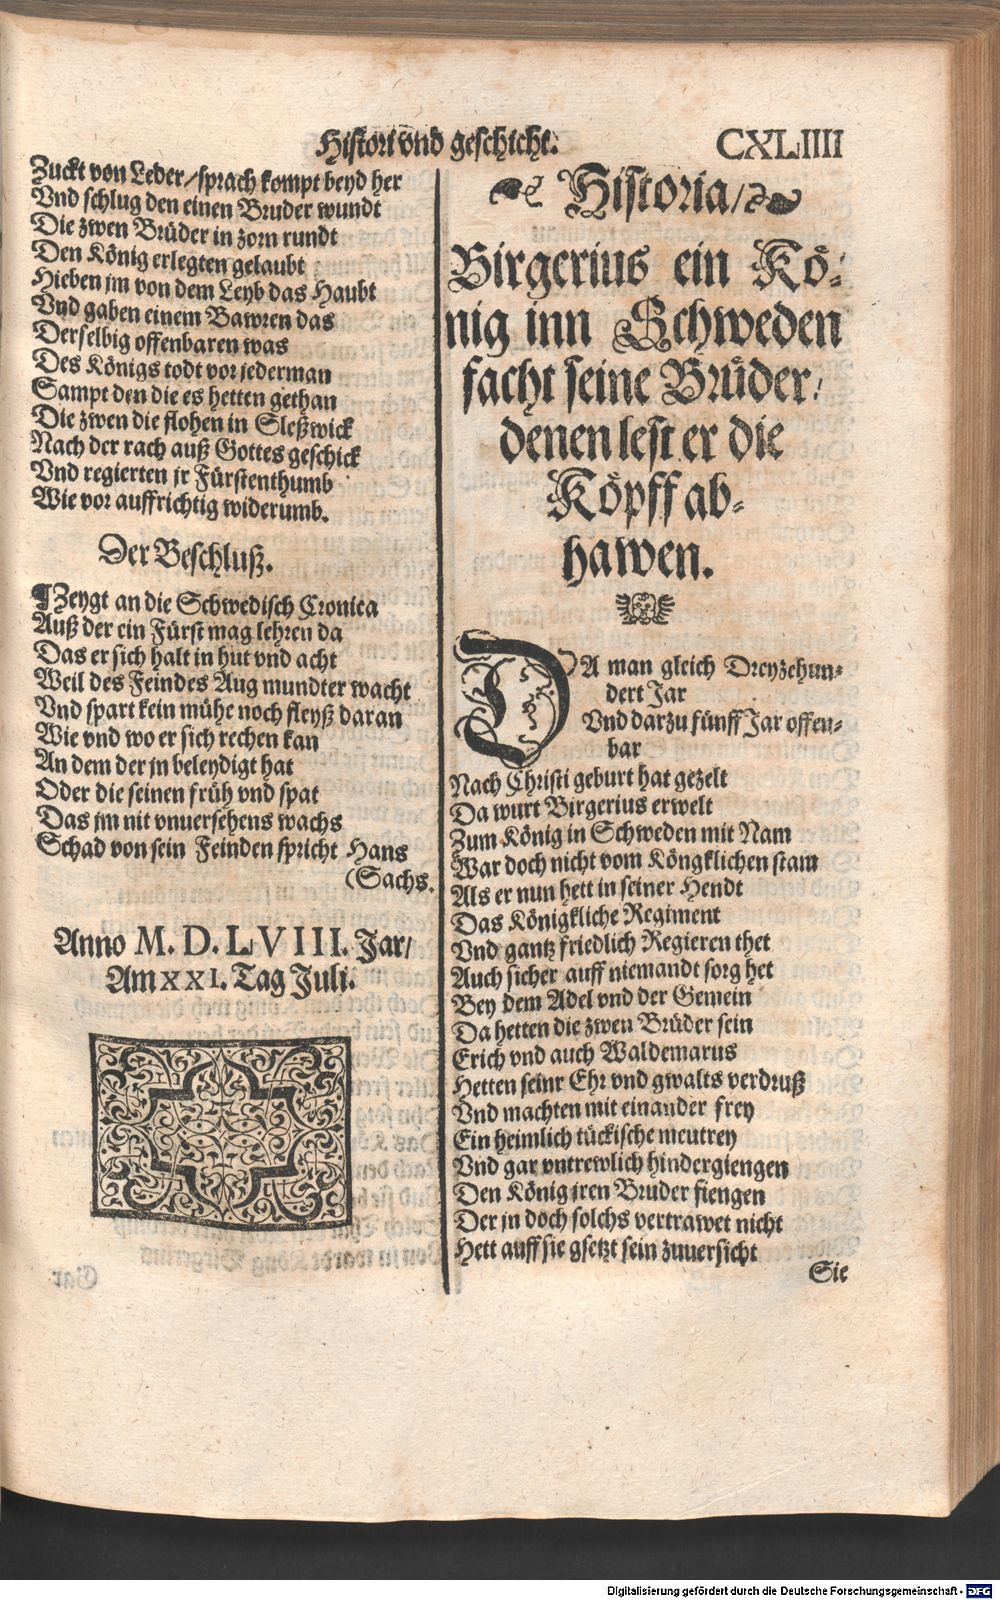 Histori vnd geschicht.
CXLIIII
Zuckt von Leder / sprach kompt beyd her
Vnd schlug den einen Bruder wundt
Die zwen Brüder in zorn rundt
Den König erlegten gelaubt
Hieben jm von dem Leyb das Haubt
Vnd gaben einem Bawren das
Derselbig offenbaren was
Des Königs todt vor jederman
Sampt den die es hetten gethan
Die zwen die flohen in Sleßwick
Nach der rach auß Gottes geschick
Vnd regierten jr Fürstenthumb
Wie vor auffrichtig widerumb.
Der Beschluß.
¶ Zeygt an die Schwedisch Cronica
Auß der ein Fürst mag lehren da
Das er sich halt in hut vnd acht
Weil des Feindes Aug mundter wacht
Vnd spart kein mühe noch fleyß daran
Wie vnd wo er sich rechen kan
An dem der jn beleydigt hat
Oder die seinen früh vnd spat
Das jm nit vnuersehens wachs
Schad von sein Feinden spricht Hans
(Sachs.
Anno M. D. LVIII. Jar/
Am XXI. Tag Juli.
Historia /
Birgerius ein Kö-
nig inn Schweden
facht seine Brüder /
denen lest er die
Köpff ab-
hawen.
DA man gleich Dreyzehun-
dert Jar
Vnd darzu fünff Jar offen-
bar
Nach Christi geburt hat gezelt
Da wurt Birgerius erwelt
Zum König in Schweden mit Nam
War doch nicht vom Köngklichen stam
Als er nun hett in seiner Hendt
Das Königkliche Regiment
Vnd gantz friedlich Regieren thet
Auch sicher auff niemandt sorg het
Bey dem Adel vnd der Gemein
Da hetten die zwen Brüder sein
Erich vnd auch Waldemarus
Hetten seinr Ehr vnd gwalts verdruß
Vnd machten mit einander frey
Ein heimlich tückische meutrey
Vnd gar vntrewlich hindergiengen
Den König jren Bruder fiengen
Der jn doch solchs vertrawet nicht
Hett auff sie gsetzt sein zuuersicht
Sie
Digitalisierung gefördert durch die Deutsche Forschungsgemeinschaft - DFG